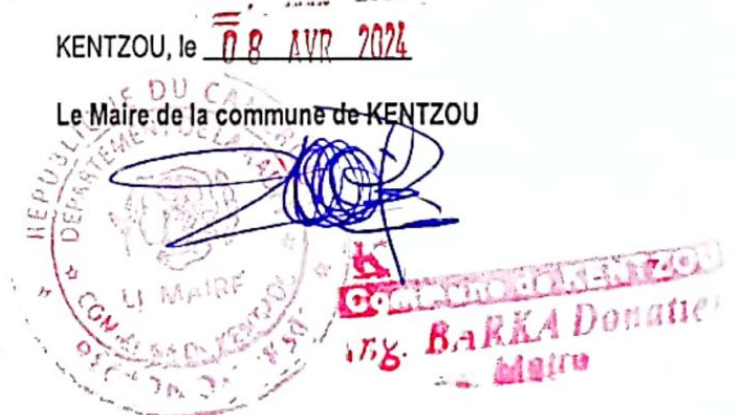 KENTZOU, le 08 AVR 2024
Le Maire de la commune de KENTZOU
REPUBLIQUE DU CAMEROUN
DEPARTEMENT DE LA KADEY
LE MAIRE
KENTZOU
Commune de KENTZOU
Ing. BARKA Donatien
Maire